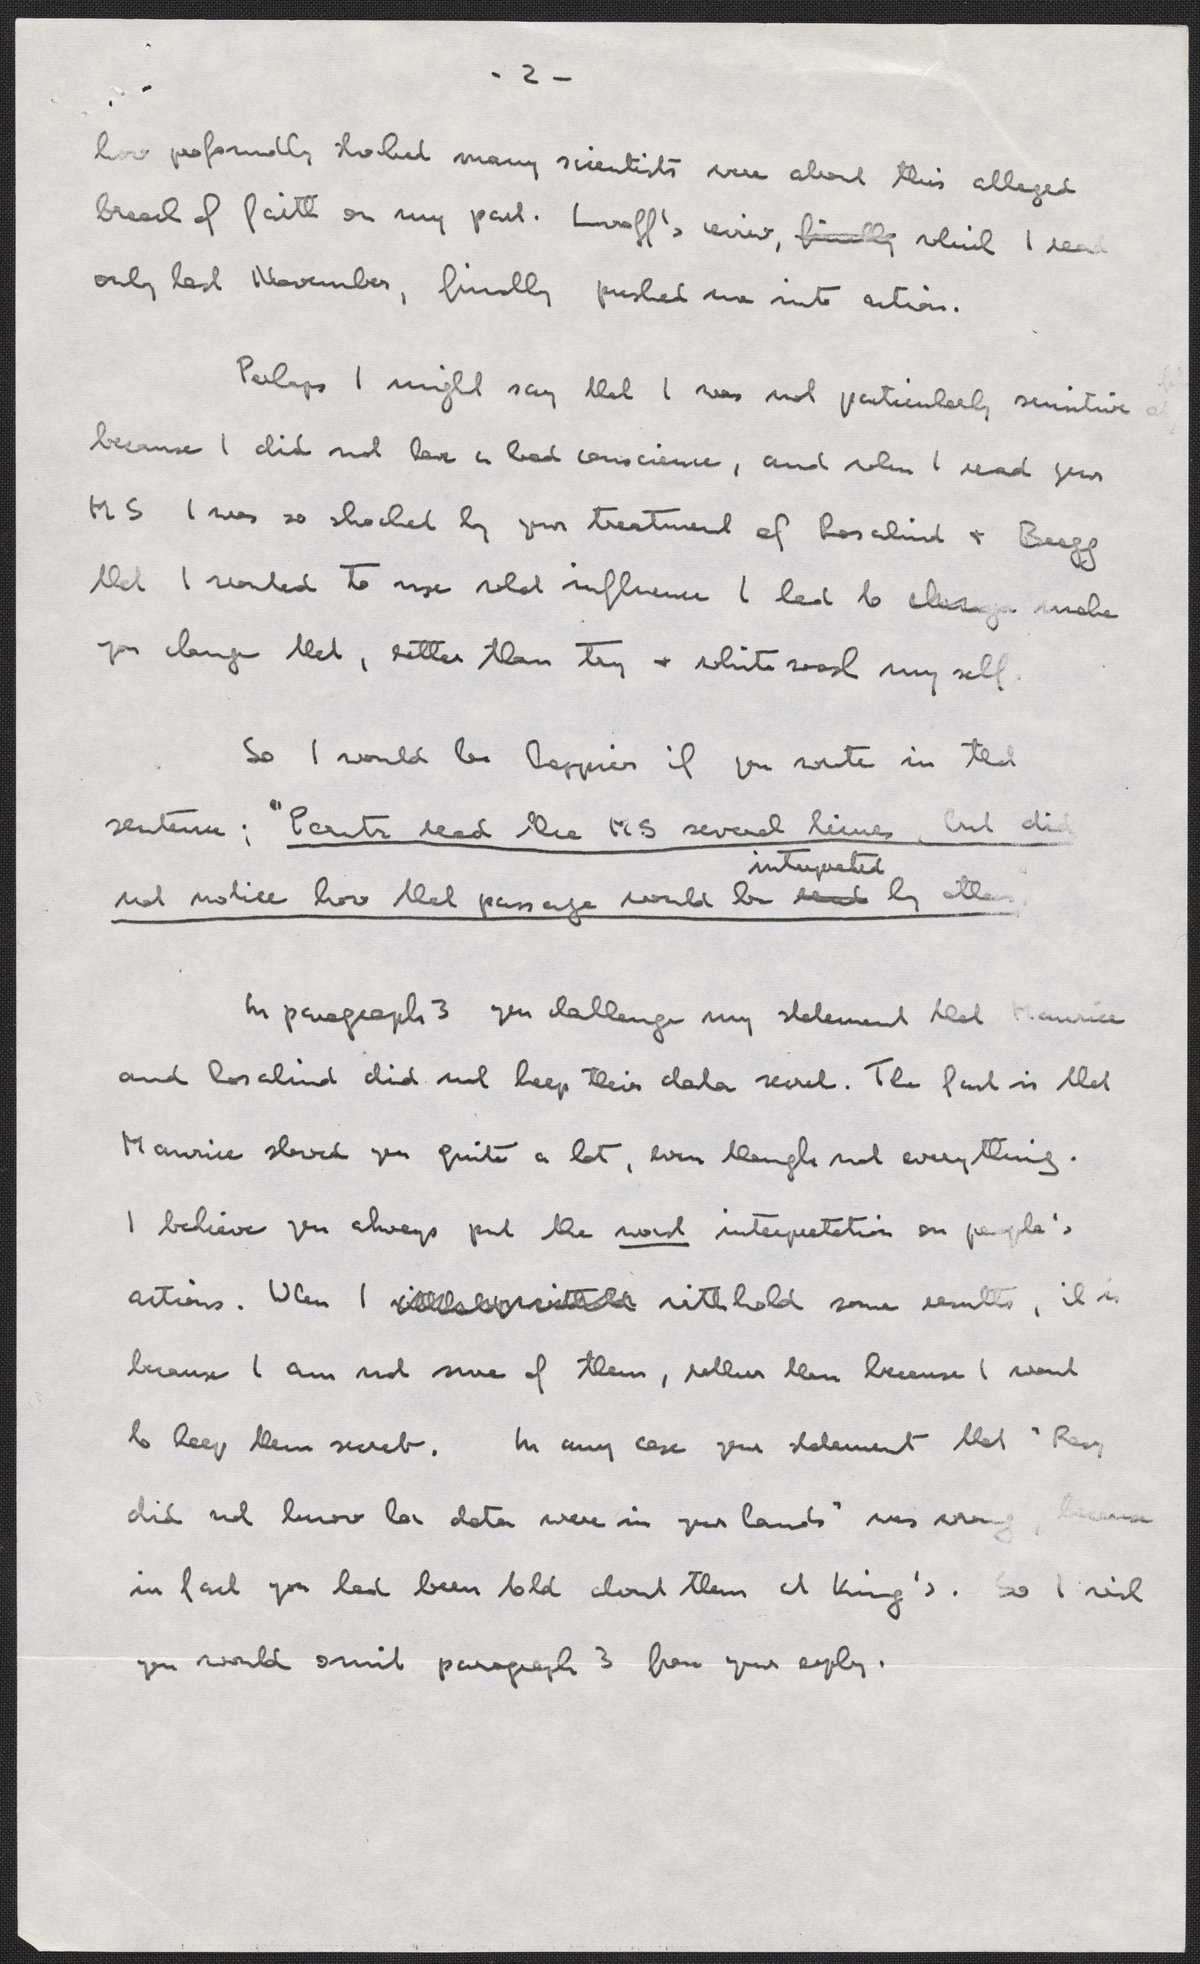 - 2 -
how profoundly shocked many scientists were about this alleged
breach of faith on my part. Lwoff's review, finally which I read
only last November, finally pushed me into action.
Perhaps I might say that I was not particularly sensitive
because I did not have a bad conscience, and when I read your
MS I was so shocked by your treatment of Rosalind + Bragg
that I wanted to use what influence I had to change make
you change that, rather than try + whitewash myself.
So I would be happier if you wrote in that
sentence; "Perutz read the MS several times, but did
interpreted
not notice how that passage would be read by others."
In paragraph 3 you challenge my statement that Maurice
and Rosalind did not keep their data secret. The fact is that
Maurice showed you quite a lot, even though not everything.
I believe you always put the worst interpretation on people's
actions. When I withhold some results, it is
because I am not sure of them, rather than because I want
to keep them secret. In any case your statement that "Rosy
did not know her data were in your hands" was wrong, because
in fact you had been told about them at King's. So I wish
you would omit paragraph 3 from your reply.